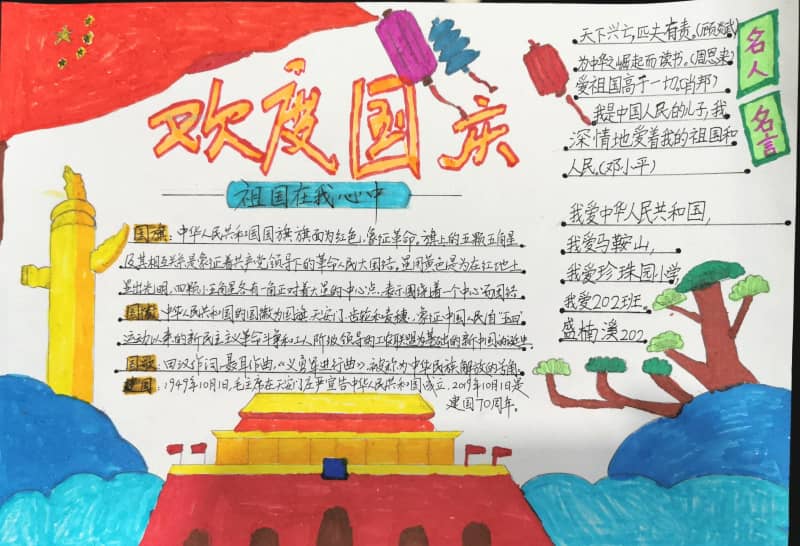 欢度国庆
祖国在我心中
国旗:中华人民共和国国旗旗面为红色,象征革命。旗上的五颗五角星
及其相互关系是象征着共产党领导下的革命人民大团结。星用黄色是为在红地上
显出光明,四颗小五角星各有一角正对着大星的中心点,表示围绕着一个中心而团结
国徽:中华人民共和国的国徽为国旗、天安门、齿轮和麦穗,象征中国人民自"五四"
运动以来的新民主主义革命斗争和工人阶级领导的工农联盟为基础的新中国的诞生
国歌:田汉作词,聂耳作曲,《义勇军进行曲》被称为中华民族解放的号角
建国:1949年10月1日,毛主席在天安门庄严宣告中华人民共和国成立,2019年10月1日是
建国70周年。
名人名言
天下兴亡,匹夫有责。(顾炎武)
为中华之崛起而读书。(周恩来)
爱祖国高于一切。(肖邦)
我是中国人民的儿子,我
深情地爱着我的祖国和
人民。(邓小平)
我爱中华人民共和国,
我爱马鞍山,
我爱珍珠园小学
我爱202班。
盛楠溪202